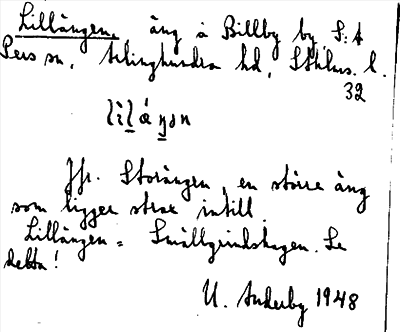 Lillängen, äng å Billby by, S:t
Pers sn, Erlinghundra hd, Sthlms l.
32
lìlǽŋən
Jfr. Storängen, en större äng
som ligger strax intill.
Lillängen = Smällgrindshagen. Se
detta!
U. 1948